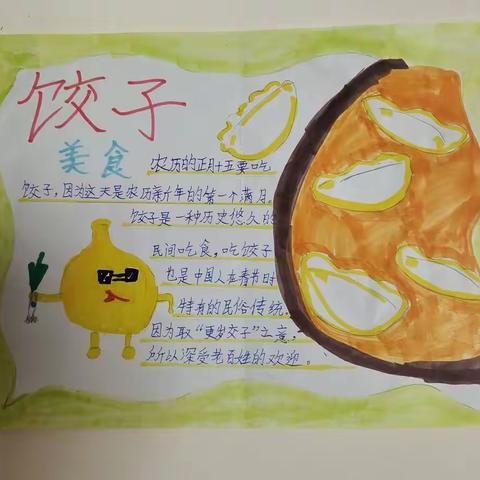 饺子
美食
农历的正月十五要吃
饺子，因为这天是农历新年的第一个满月，
饺子是一种历史悠久的
民间吃食，吃饺子
也是中国人在春节时
特有的民俗传统。
因为取“更岁交子”之意，
所以深受老百姓的欢迎。